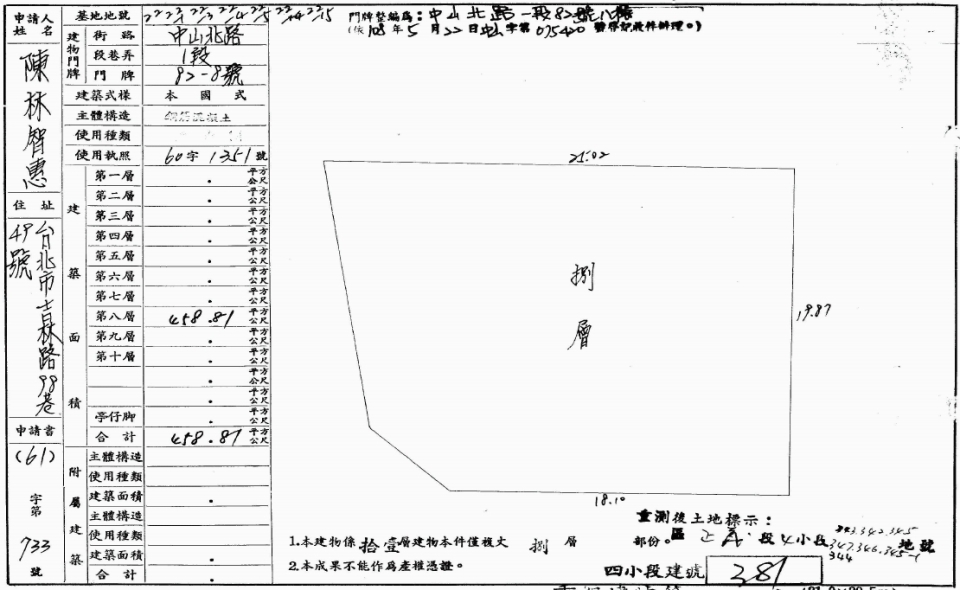 申請人姓名
陳林智惠
住址
台北市士林路98巷
49號
申請書
(61)
字第
733
號
基地地號
建物門牌
街路 中山北路
段巷弄 1段
門牌 82-8號
建築式樣 本國式
主體構造 鋼筋混凝土
使用種類
使用執照 60字1351號
建築面積
第一層 . 平方公尺
第二層 . 平方公尺
第三層 . 平方公尺
第四層 . 平方公尺
第五層 . 平方公尺
第六層 . 平方公尺
第七層 . 平方公尺
第八層 458.81 平方公尺
第九層 . 平方公尺
第十層 . 平方公尺
. 平方公尺
. 平方公尺
亭仔脚 . 平方公尺
合計 458.81 平方公尺
附屬建築
主體構造
使用種類
建築面積 .
主體構造
使用種類
建築面積 .
合計 .
門牌整編為:中山北路一段82號八樓
(依108年5月22日中山字第075420號登記收件辦理。)
25.02
捌層
19.87
18.10
1.本建物係拾壹層建物本件僅複丈捌層部份。
2.本成果不能作為產權憑證。
重測後土地標示:
區正義段四小段
地號
344
四小段建號 381